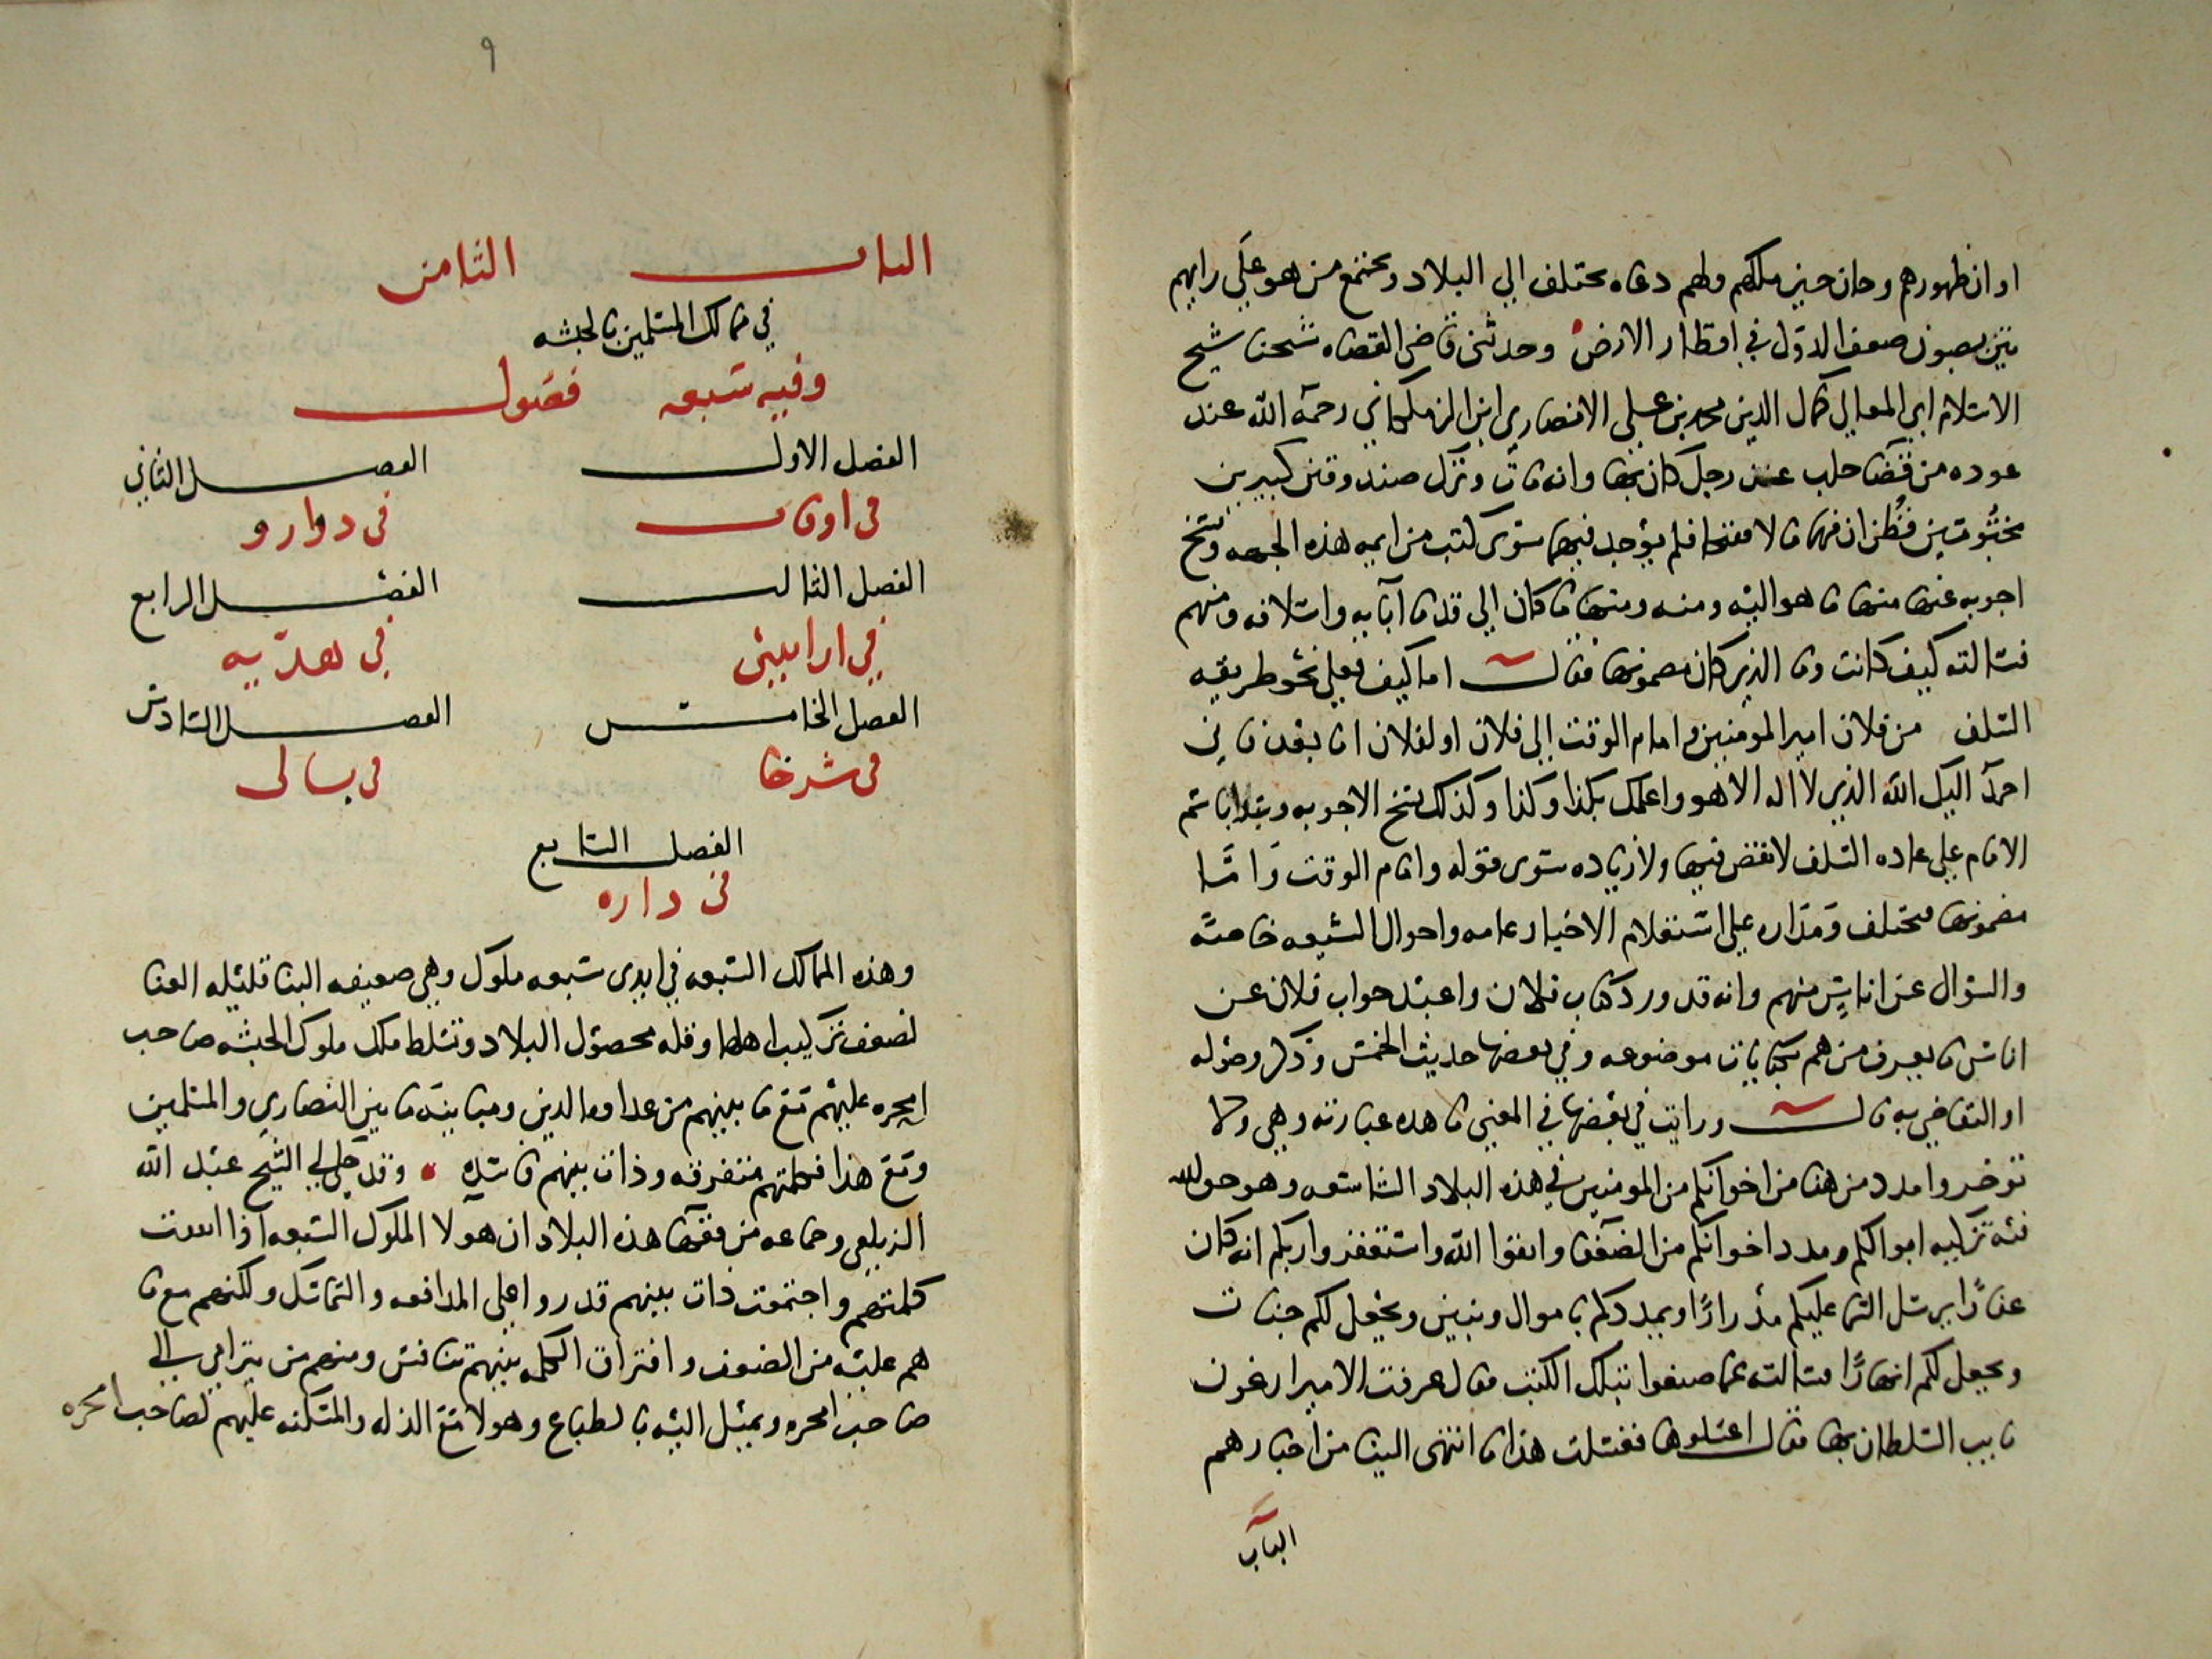 اوان ظهورهم وحان حين ملكهم ولهم دعاه تختلف الي البلاد وتجتمع من هو علي رايهم
بضعف الدول في اقطار الارض وحدثني قاضي القضاه شيخنا شيخ
الاسلام ابي المعالي كمال الدين محمد بن علي الانصاري ابن الزملكاني رحمه الله عند
عوده من قضا حلب عن رجل كان بها وانه مات وترك صندوقين كبيرين
مختومين فظن ان فيهما مالا ففتحا فلم يوجد فيهما سوى كتب من ايمه هذه الجهه ونسخ
اجوبه عنها منها ما هو اليه ومنه ومنها ما كان الي قدما آبايه واسلافه ومنهم
فسالته كيف كانت وما الذي كان مضمونها فقال اما كيف فعلي نحو طريقه
السلف من فلان امير المومنين وامام الوقت الي فلان او لفلان اما بعد فاني
احمد اليك الله الذي لا اله الا هو واعلمك بكذا وكذا وكذلك نسخ الاجوبه
الامام علي عاده السلف لا نقص فيها ولا زياده سوى قوله وامام الوقت واما
مضمونها فمختلف ومداره علي استعلام الاخبار عامه واحوال الشيعه خاصه
والسؤال عن اناس منهم وانه قد ورد كتاب فلان واعيد جواب فلان عن
اناس ما يعرف من هم بكنايات موضوعه وفي بعضها حديث الخمس وذكر وصوله
او التقاضي به قال ورايت في بعضها في المعني ما هذه عبارته وهي ولا
توخروا مدد من هنا من اخوانكم المومنين في هذه البلاد الشاسعه وهو حق الله
فيه تزكيه اموالكم ومدد اخوانكم من الضعفا واتقوا الله واستغفروا ربكم انه كان
غفارًا يرسل السما عليكم مدرارًا ويمددكم باموال وبنين ويجعل لكم جنات
ويجعل لكم انهارًا فسالته عما صنعوا بتلك الكتب فقال عرفت الامير ارغون
نايب السلطان بها فقال اغسلوها فغسلت هذا ما انتهى الينا من اخبارهم
الباب
٩
الباب الثامن
في ممالك المسلمين بالحبشه
وفيه سبعه فصول
الفصل الاول الفصل الثاني
في اوفات في دوارو
الفصل الثالث الفصل الرابع
في ارابيني في هديه
الفصل الخامس الفصل السادس
في شرخا في بالى
الفصل السابع
في داره
وهذه الممالك السبعه في ايدى سبعه ملوك وهي ضعيفه البنا قليله الغنا
لضعف تركيب اهلها وقله محصول البلاد وتسلط ملك ملوك الحبشه صاحب
امحره عليهم مع ما بينهم من عداوه الدين ومباينه ما بين النصاري والمسلمين
ومع هذا فكلمتهم متفرقه وذات بينهم فاسده وقد حكي لي الشيخ عبد الله
الزيلعي وجماعه من فقها هذه البلاد ان هولا الملوك السبعه اذا اتفقت
كلمتهم واجتمعت ذات بينهم قدروا علي المدافعه والتماسك ولكنهم مع ما
هم عليه من الضعف وافتراق الكلمه بينهم تنافس ومنهم من يترامى الي
صاحب امحره ويميل اليه بالطباع وهولا مع الذله والمسكنه عليهم لصاحب امحره